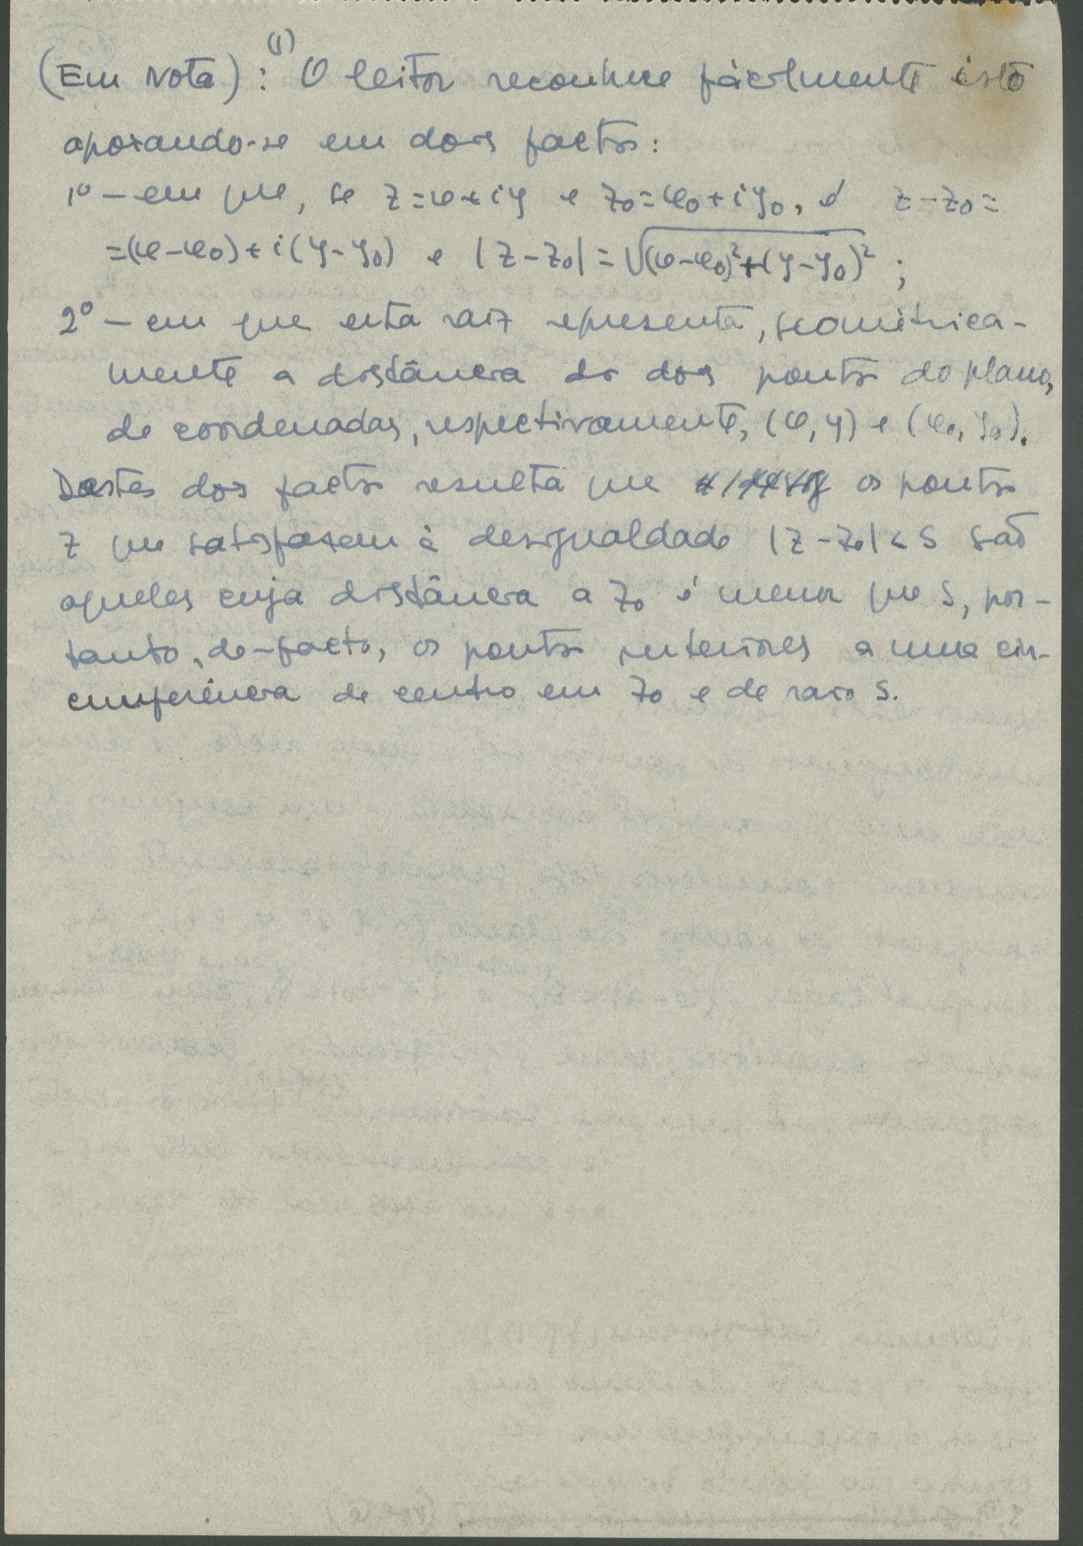 (Em Nota): (1) O leitor reconhece fàcilmente isto
apoiando-se em dois factos:
1º — em que, se z=x+iy e z₀=x₀+iy₀, é z-z₀=
=(x-x₀)+i(y-y₀) e |z-z₀|=√(x-x₀)²+(y-y₀)² ;
2º — em que esta raiz representa, geomètrica-
mente a distância de dois pontos do plano,
de coordenadas, respectivamente, (x,y) e (x₀,y₀).
Destes dois factos resulta que os pontos
z que satisfazem à desigualdade |z-z₀|<S são
aqueles cuja distância a z₀ é menor que S, por-
tanto, de-facto, os pontos interiores a uma cir-
cunferência de centro em z₀ e de raio S.